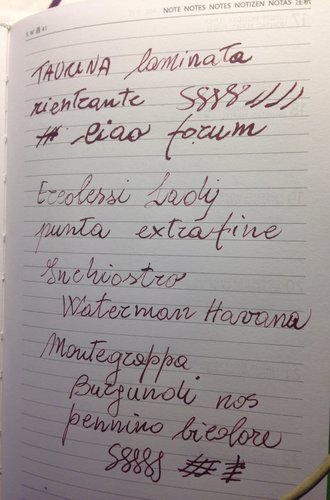 NOTE NOTES NOTES NOTIZEN NOTAS 注釈
TAURINA laminata
rientrante
# Ciao forum
Ercolessi Lady
punta extrafine
Inchiostro
Waterman Havana
Montegrappa
Burgundi nos
pennino bicolore